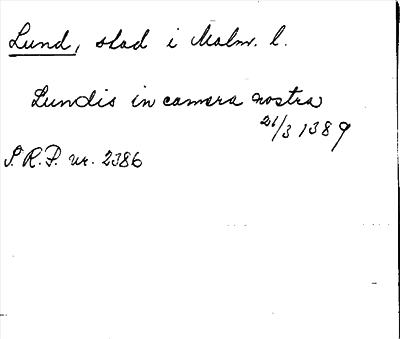 Lund, stad i Malm. l.
Lundis in camera nostra
21/3 1389
S.R.P. nr. 2386